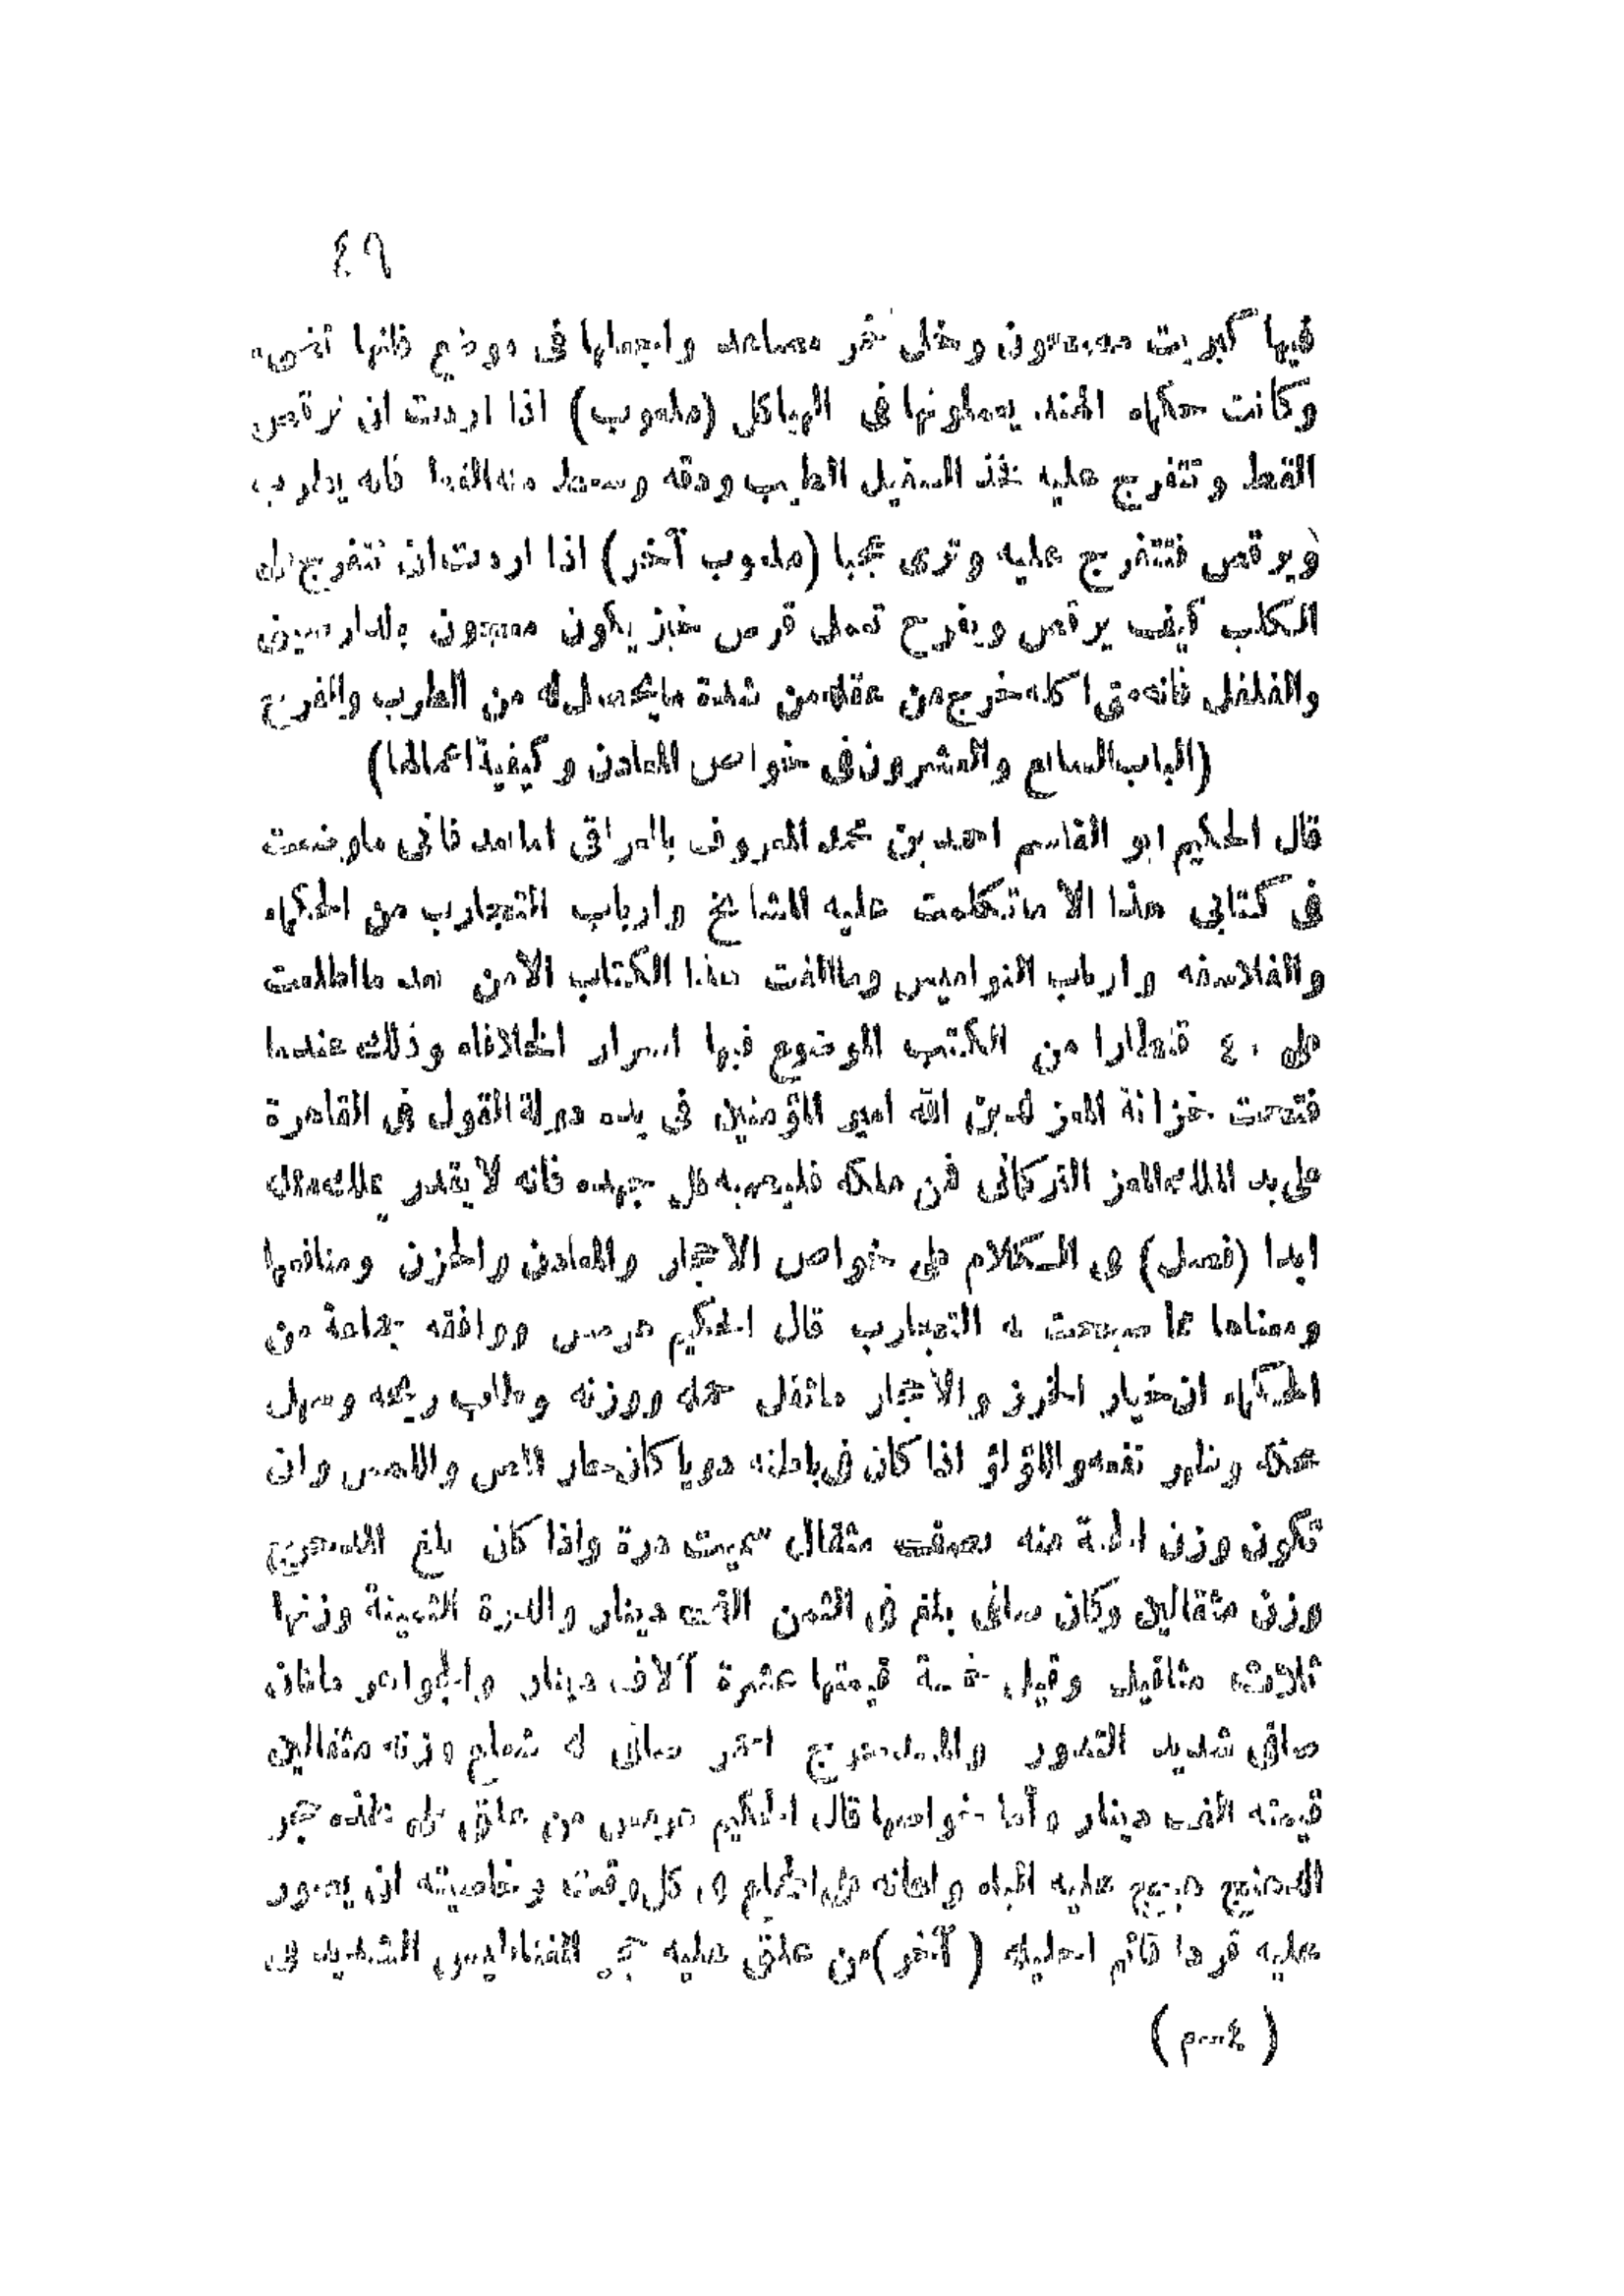 ٤٩
فيها كبريت معجون وخل خمر مصاعد واجعلها فى موضع فانها تضىء
وكانت حكماء الهند يعملونها فى الهياكل (ملعوب) اذا اردت ان ترقص
القط وتتفرج عليه فخذ السنبل الطيب ودقه وسعط منه القط فانه يطرب
ويرقص فتتفرج عليه وترى عجبا (ملعوب آخر) اذا اردت ان تتفرج على
الكلب كيف يرقص ويفرح تعمل قرص خبز يكون معجون بالدارصينى
والفلفل فانه متى اكله خرج من عقله من شدة ما يحصل له من الطرب والفرح
(الباب السابع والعشرون فى خواص المعادن وكيفية اعمالها)
قال الحكيم ابو القاسم احمد بن محمد المعروف بالعراقى اما بعد فانى ما وضعت
فى كتابى هذا الا ما تكلمت عليه المشايخ وارباب التجارب من الحكماء
والفلاسفه وارباب النواميس وما الفت هذا الكتاب الا من بعد ما اطلعت
على ٤٠ قنطارا من الكتب الموضوع فيها اسرار الخلافاه وذلك عندما
فتحت خزانة المعز لدين الله امير المؤمنين فى بده دولة القول فى القاهرة
على يد الملك المعز التركانى فمن ملكه فليصبه على جهده فانه لا يقدر على مثله
ابدا (فصل) فى الكلام على خواص الاحجار والمعادن والخزن ومنافعها
ومعناها مما صحت به التجارب قال الحكيم هرمس ووافقه جماعة من
الحكماء ان خيار الخرز والاحجار ما ثقل حمله ووزنه وطاب ريحه وسهل
حكه وظهر نفعه واللؤلؤ اذا كان فى باطنه دويا كان حار المس واللمس وان
تكون وزن الحبة منه نصف مثقال سميت درة واذا كان بلغ المدحرج
وزن مثقالين وكان صافى بلغ فى الثمن الف دينار والدرة الثمينة وزنها
ثلاث مثاقيل وقيل خمسة قيمتها عشرة آلاف دينار والجواهر ما كان
صافى شديد التدور والمدحرج احمر صافى له شعاع وزنه مثقالين
قيمته الف دينار وأما خواصها قال الحكيم هرمس من علق على فخذه حجر
هيج عليه الباه واعانه على الجماع فى كل وقت وخاصيته ان يصور
عليه قردا قائم احليله (آخر) من علق عليه حجر المغناطيس الشديد فى